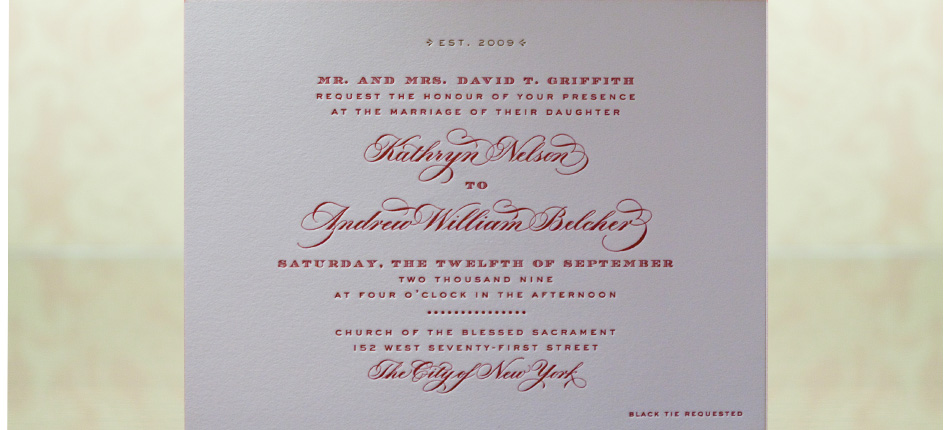 EST. 2009
MR. AND MRS. DAVID T. GRIFFITH
REQUEST THE HONOUR OF YOUR PRESENCE
AT THE MARRIAGE OF THEIR DAUGHTER
Kathryn Nelson
TO
Andrew William Belcher
SATURDAY, THE TWELFTH OF SEPTEMBER
TWO THOUSAND NINE
AT FOUR O'CLOCK IN THE AFTERNOON
CHURCH OF THE BLESSED SACRAMENT
152 WEST SEVENTY-FIRST STREET
The City of New York
BLACK TIE REQUESTED